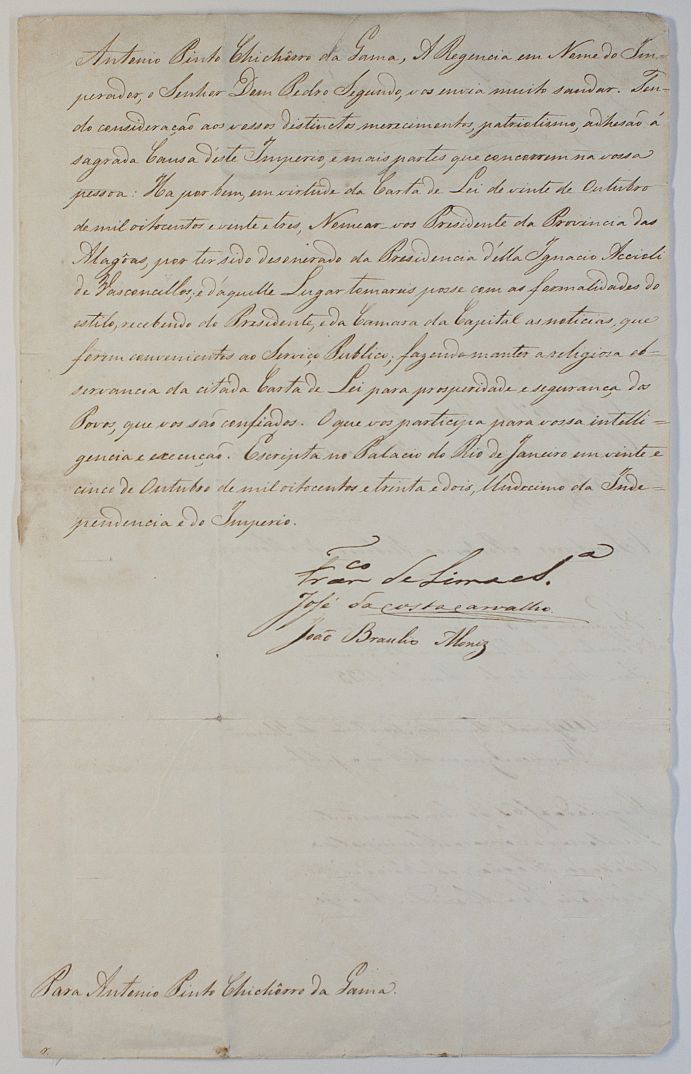 Antonio Pinto Chichôrro da Gama, A Regencia em Nome do Im-
perador, o Senhor Dom Pedro Segundo, vos envia muito saudar. Ten-
do consideração aos vossos distinctos merecimentos, patriotismo, adhesão á
sagrada Causa d'éste Imperio, e mais partes que concorrem na vossa
pessoa: Ha por bem, em virtude da Carta de Lei de vinte de Outubro
de mil oitocentos e vinte e tres, Nomear-vos Presidente da Provincia das
Alagôas, por ter sido desonerado da Presidencia d'élla Ignacio Accioli
de Vasconcillos; e d'aquelle Lugar tomareis posse com as formalidades do
estilo, recebendo do Presidente, e da Camara da Capital as noticias, que
forem convenientes ao Serviço Publico; fazendo manter a religiosa ob-
servancia da citada Carta de Lei para prosperidade e segurança dos
Povos, que vos são confiados. O que vos participa para vossa intelli-
gencia e execução. Escripta no Palacio do Rio de Janeiro em vinte e
cinco de Outubro de mil oitocentos e trinta e dois, Undecimo da Inde-
pendencia e do Imperio.
Franco de Lima e S.a
José da Costa Carvalho
João Braulio Moniz
Para Antonio Pinto Chichôrro da Gama.